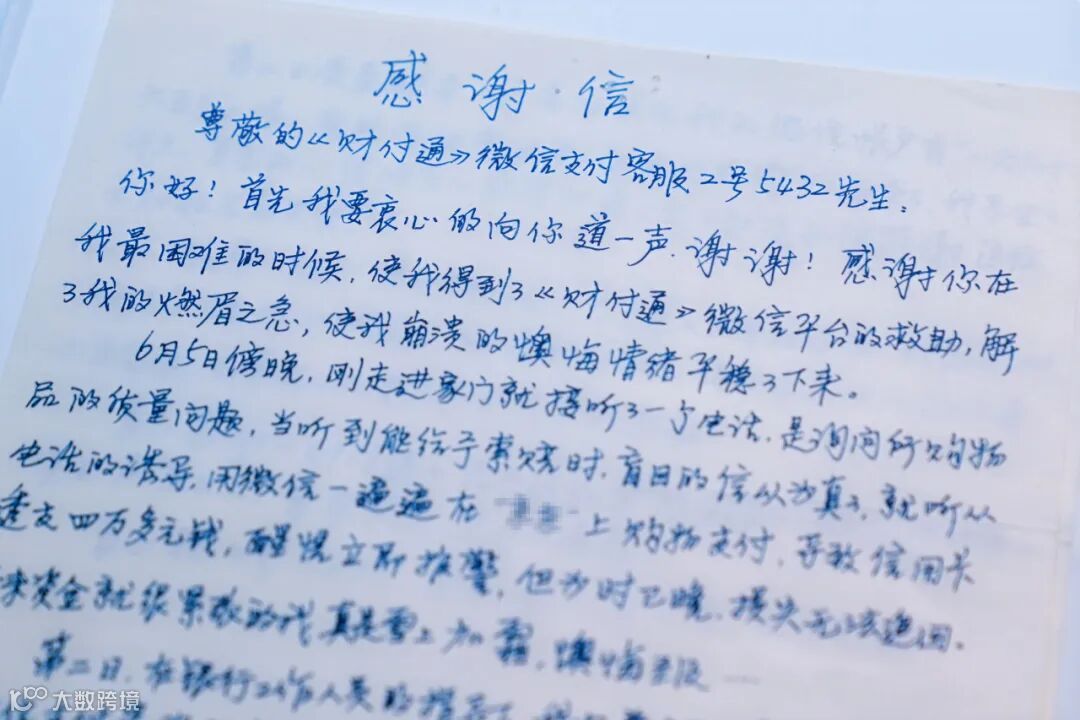 感谢信
尊敬的《财付通》微信支付客服2号5432先生：
你好！首先我要衷心的向你道一声.谢谢！感谢你在
我最困难的时候，使我得到了《财付通》微信平台的救助，解
了我的燃眉之急，使我崩溃的懊悔情绪平稳了下来。
6月5日傍晚，刚走进家门就接听了一个电话，是询问所购物
品的质量问题，当听到能给予索赔时，盲目的信以为真了，就听从
电话的诱导，用微信一遍遍在 上购物支付，导致信用卡
透支四万多元钱，醒悟立即报警，但为时已晚，损失无法追回。
来资金就很紧张的我真是雪上加霜，懊悔至极
第二日，在银行工作人员的指导下
大数跨境